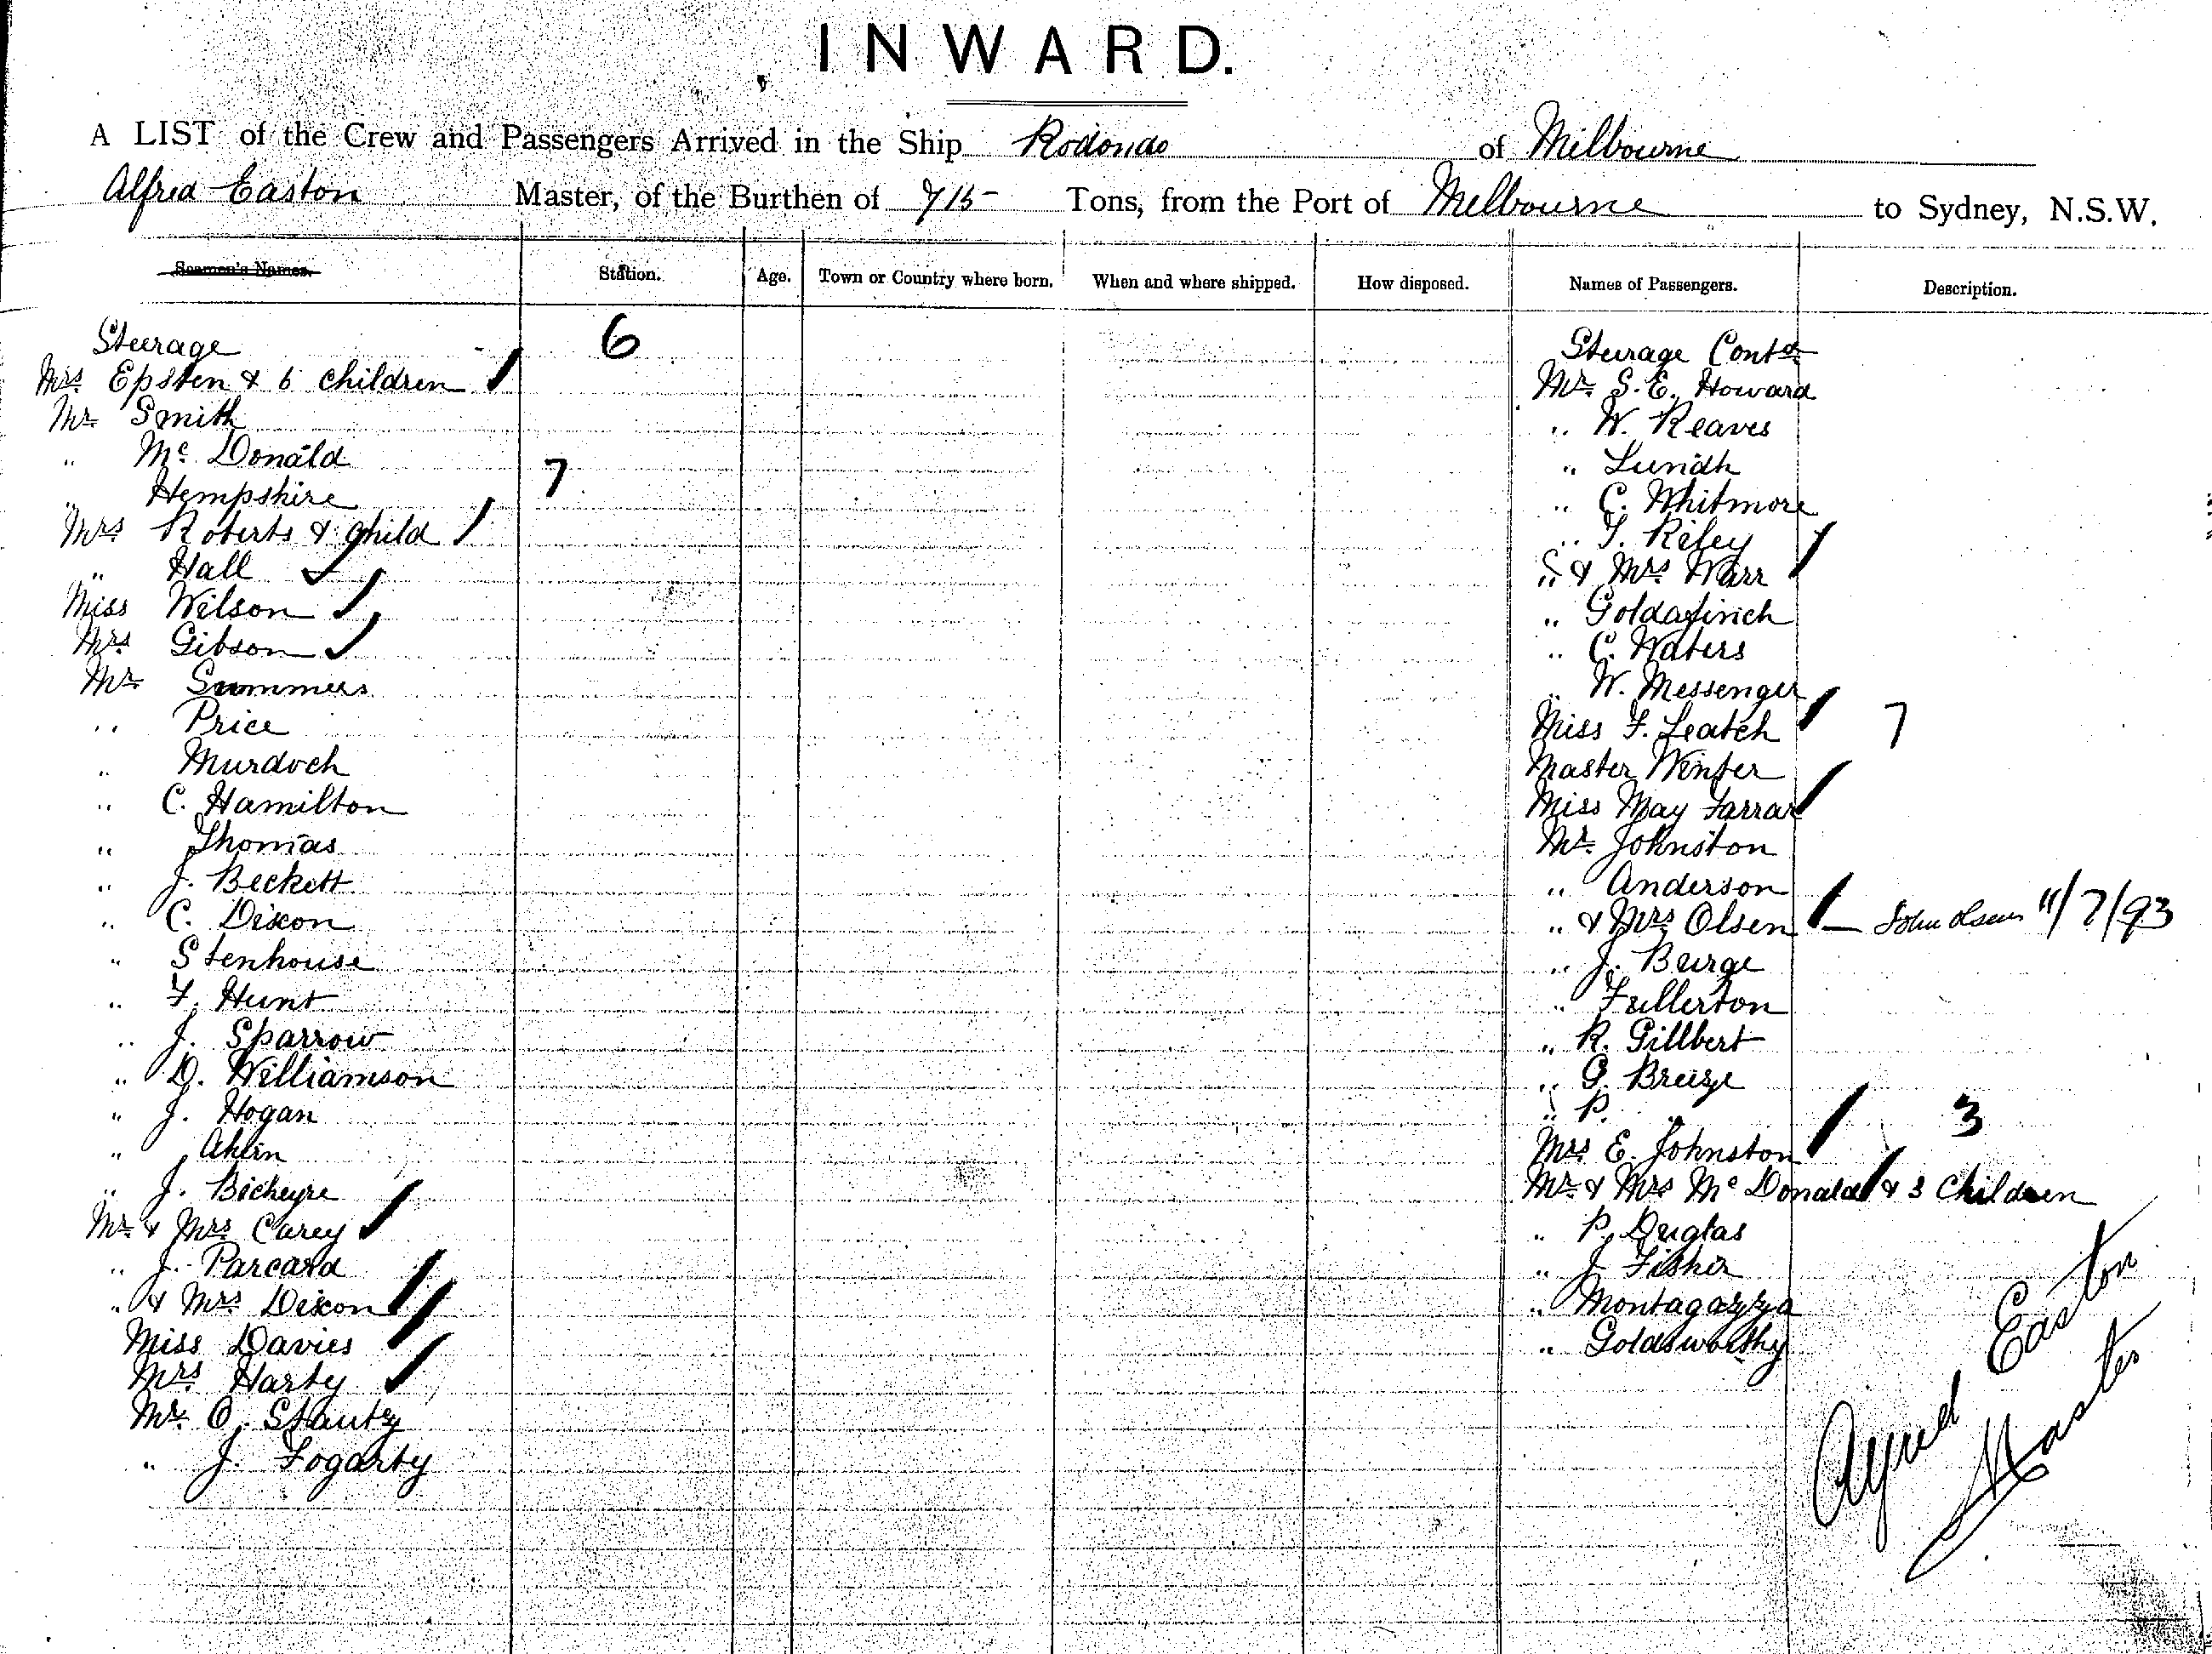 INWARD.
A LIST of the Crew and Passengers Arrived in the Ship Rodondo of Melbourne
Alfred Easton Master, of the Burthen of 715 Tons, from the Port of Melbourne to Sydney, N.S.W.
Seamen's Names. Station. Age. Town or Country where born. When and where shipped. How disposed. Names of Passengers. Description.
Steerage 6
Mrs Epsten & 6 children
Mr Smith
" Mc Donald
7
" Hempshire
Mrs Roberts & child
" Hall
Miss Wilson
Mrs Gibson
Mr Summers
" Price
" Murdoch
" C. Hamilton
" Thomas
" J. Beckett
" C. Dixon
" Stenhouse
" F. Hunt
" J. Sparrow
" D. Williamson
" J. Hogan
" Ahlin
" J. Bicheyre
Mr & Mrs Carey
" J. Parcard
" & Mrs Dixon
Miss Davies
Mrs Harty
Mr O. Stautz
" J. Fogarty
Steerage Contd
Mr S. E. Howard
" W. Reaves
" Lundh
" C. Whitmore
" T. Riley
" & Mrs Warr
" Goldafinch
" C. Waters
" W. Messenger
Miss F. Leatch 7
Master Winter
Miss May Farrar
Mr Johnston
" Anderson
" & Mrs Olsen — John Olsen 11/7/93
" J. Burge
" Fullerton
" R. Gillbert
" G. Breeze
" P. "
3
Mrs E. Johnston
Mr & Mrs Mc Donald & 3 Children
" P. Duglas
" J Fisher
" Montagazza
" Goldsworthy
Alfred Easton
Master